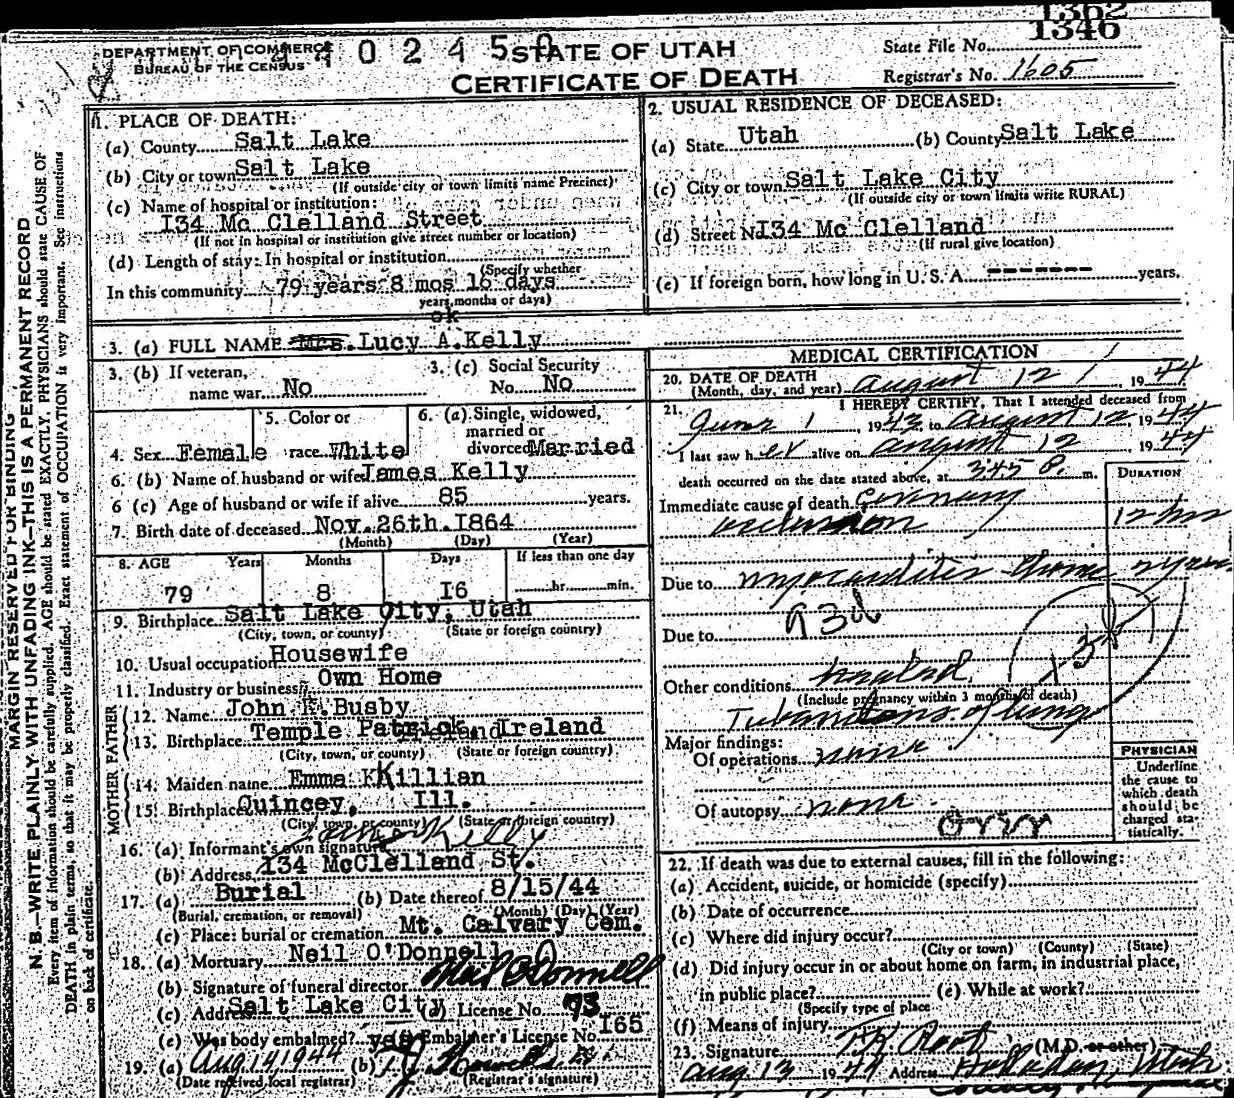 1362
1346
DEPARTMENT OF COMMERCE
BUREAU OF THE CENSUS
4 0 2 4 5 0
STATE OF UTAH
CERTIFICATE OF DEATH
State File No.
Registrar's No. 1605
MARGIN RESERVED FOR BINDING
N. B.—WRITE PLAINLY WITH UNFADING INK—THIS IS A PERMANENT RECORD
Every item of information should be carefully supplied. AGE should be stated EXACTLY. PHYSICIANS should state CAUSE OF
DEATH in plain terms, so that it may be properly classified. Exact statement of OCCUPATION is very important. See instructions
on back of certificate.
1. PLACE OF DEATH:
(a) County Salt Lake
(b) City or town Salt Lake
(If outside city or town limits name Precinct)
(c) Name of hospital or institution:
I34 Mc Clelland Street
(If not in hospital or institution give street number or location)
(d) Length of stay: In hospital or institution
(Specify whether
In this community 79 years 8 mos 16 days
years, months or days)
2. USUAL RESIDENCE OF DECEASED:
(a) State Utah (b) County Salt Lake
(c) City or town Salt Lake City
(If outside city or town limits write RURAL)
(d) Street No. I34 Mc Clelland
(If rural give location)
(e) If foreign born, how long in U. S. A. -------- years.
ok
3. (a) FULL NAME Mrs. Lucy A.Kelly
3. (b) If veteran,
name war No
3. (c) Social Security
No. No
4. Sex Female
5. Color or
race White
6. (a) Single, widowed,
married or
divorced Married
6. (b) Name of husband or wife James Kelly
6 (c) Age of husband or wife if alive 85 years.
7. Birth date of deceased Nov. 26th. I864
(Month) (Day) (Year)
8. AGE Years Months Days If less than one day
79 8 I6 hr. min.
9. Birthplace Salt Lake City, Utah
(City, town, or county) (State or foreign country)
10. Usual occupation Housewife
11. Industry or business Own Home
FATHER
12. Name John Busby
13. Birthplace Temple Patrick, Ireland
(City, town, or county) (State or foreign country)
MOTHER
14. Maiden name Emma Killian
15. Birthplace Quincey, Ill.
(City, town, or county) (State or foreign country)
16. (a) Informant's own signature James Kelly
(b) Address 134 McClelland St.
17. (a) Burial (b) Date thereof 8/15/44
(Burial, cremation, or removal) (Month) (Day) (Year)
(c) Place: burial or cremation Mt. Calvary Cem.
18. (a) Mortuary Neil O'Donnell
(b) Signature of funeral director Neil O'Donnell
(c) Address Salt Lake City (d) License No. 93
(e) Was body embalmed? yes (f) Embalmer's License No. I65
19. (a) Aug 14, 1944 (b)
(Date received local registrar) (Registrar's signature)
MEDICAL CERTIFICATION
20. DATE OF DEATH
(Month, day, and year) August 12, 1944
21. I HEREBY CERTIFY, That I attended deceased from
June 1, 1943 to August 12, 1944
I last saw her alive on August 12 1944
death occurred on the date stated above, at 345 P. m.
DURATION
Immediate cause of death Coronary
occlusion 12 hrs
Due to myocarditis chronic 2 years
Due to 93d
Other conditions healed
(Include pregnancy within 3 months of death)
Tuberculosis of lung
Major findings:
Of operations none
Of autopsy none
PHYSICIAN
Underline
the cause to
which death
should be
charged sta-
tistically.
22. If death was due to external causes, fill in the following:
(a) Accident, suicide, or homicide (specify)
(b) Date of occurrence
(c) Where did injury occur?
(City or town) (County) (State)
(d) Did injury occur in or about home on farm, in industrial place,
in public place? (e) While at work?
(Specify type of place
(f) Means of injury
23. Signature Root (M.D. or other)
Aug. 13 1944 Address Utah